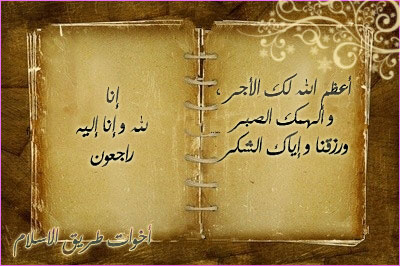 أعظم الله لك الأجر،
وألهمك الصبر
ورزقنا وإياك الشكر
إنا
لله وإنا إليه
راجعون
أخوات طريق الاسلام